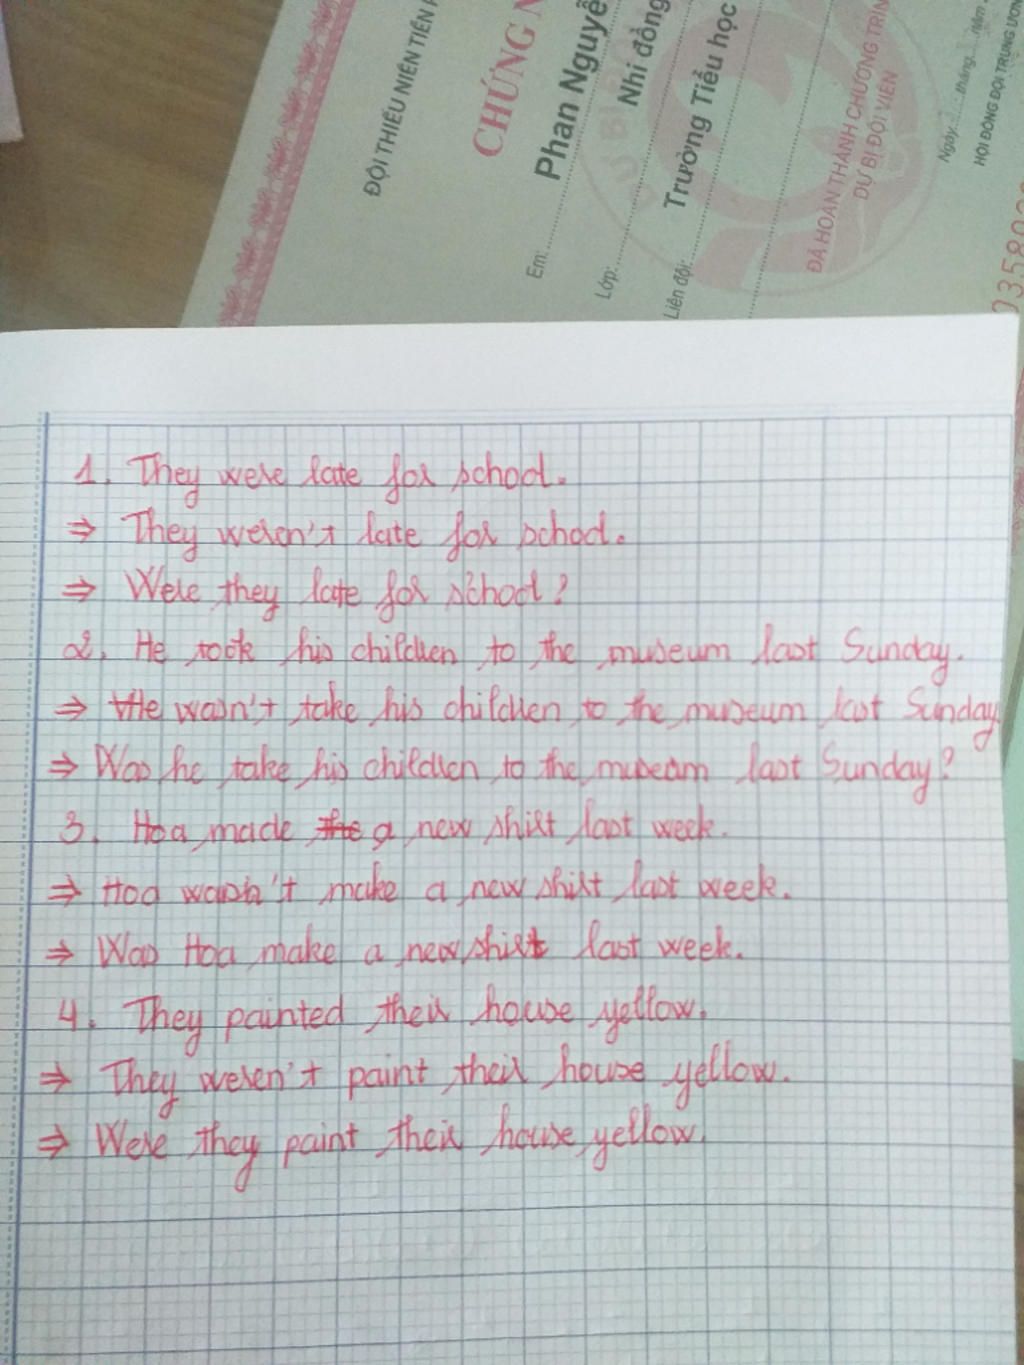 ĐỘI THIẾU NIÊN TIỀN
CHỨNG
Em: Phan Nguyễ
Lớp: Nhi đồng
Liên đội: Trường Tiểu học
ĐÃ HOÀN THÀNH CHƯƠNG TRÌN
DỰ BỊ ĐỘI VIÊN
Ngày.... tháng.... năm
HỘI ĐỒNG ĐỘI TRUNG ƯƠN
1. They were late for school.
⇒ They weren't late for school.
⇒ Were they late for school?
2. He took his children to the museum last Sunday.
⇒ He wasn't take his children to the museum last Sunday
⇒ Was he take his children to the museam last Sunday?
3. Hoa made the a new shirt last week.
⇒ Hoa wasn't make a new shirt last week.
⇒ Was Hoa make a new shirt last week.
4. They painted their house yellow.
⇒ They weren't paint their house yellow.
⇒ Were they paint their house yellow.